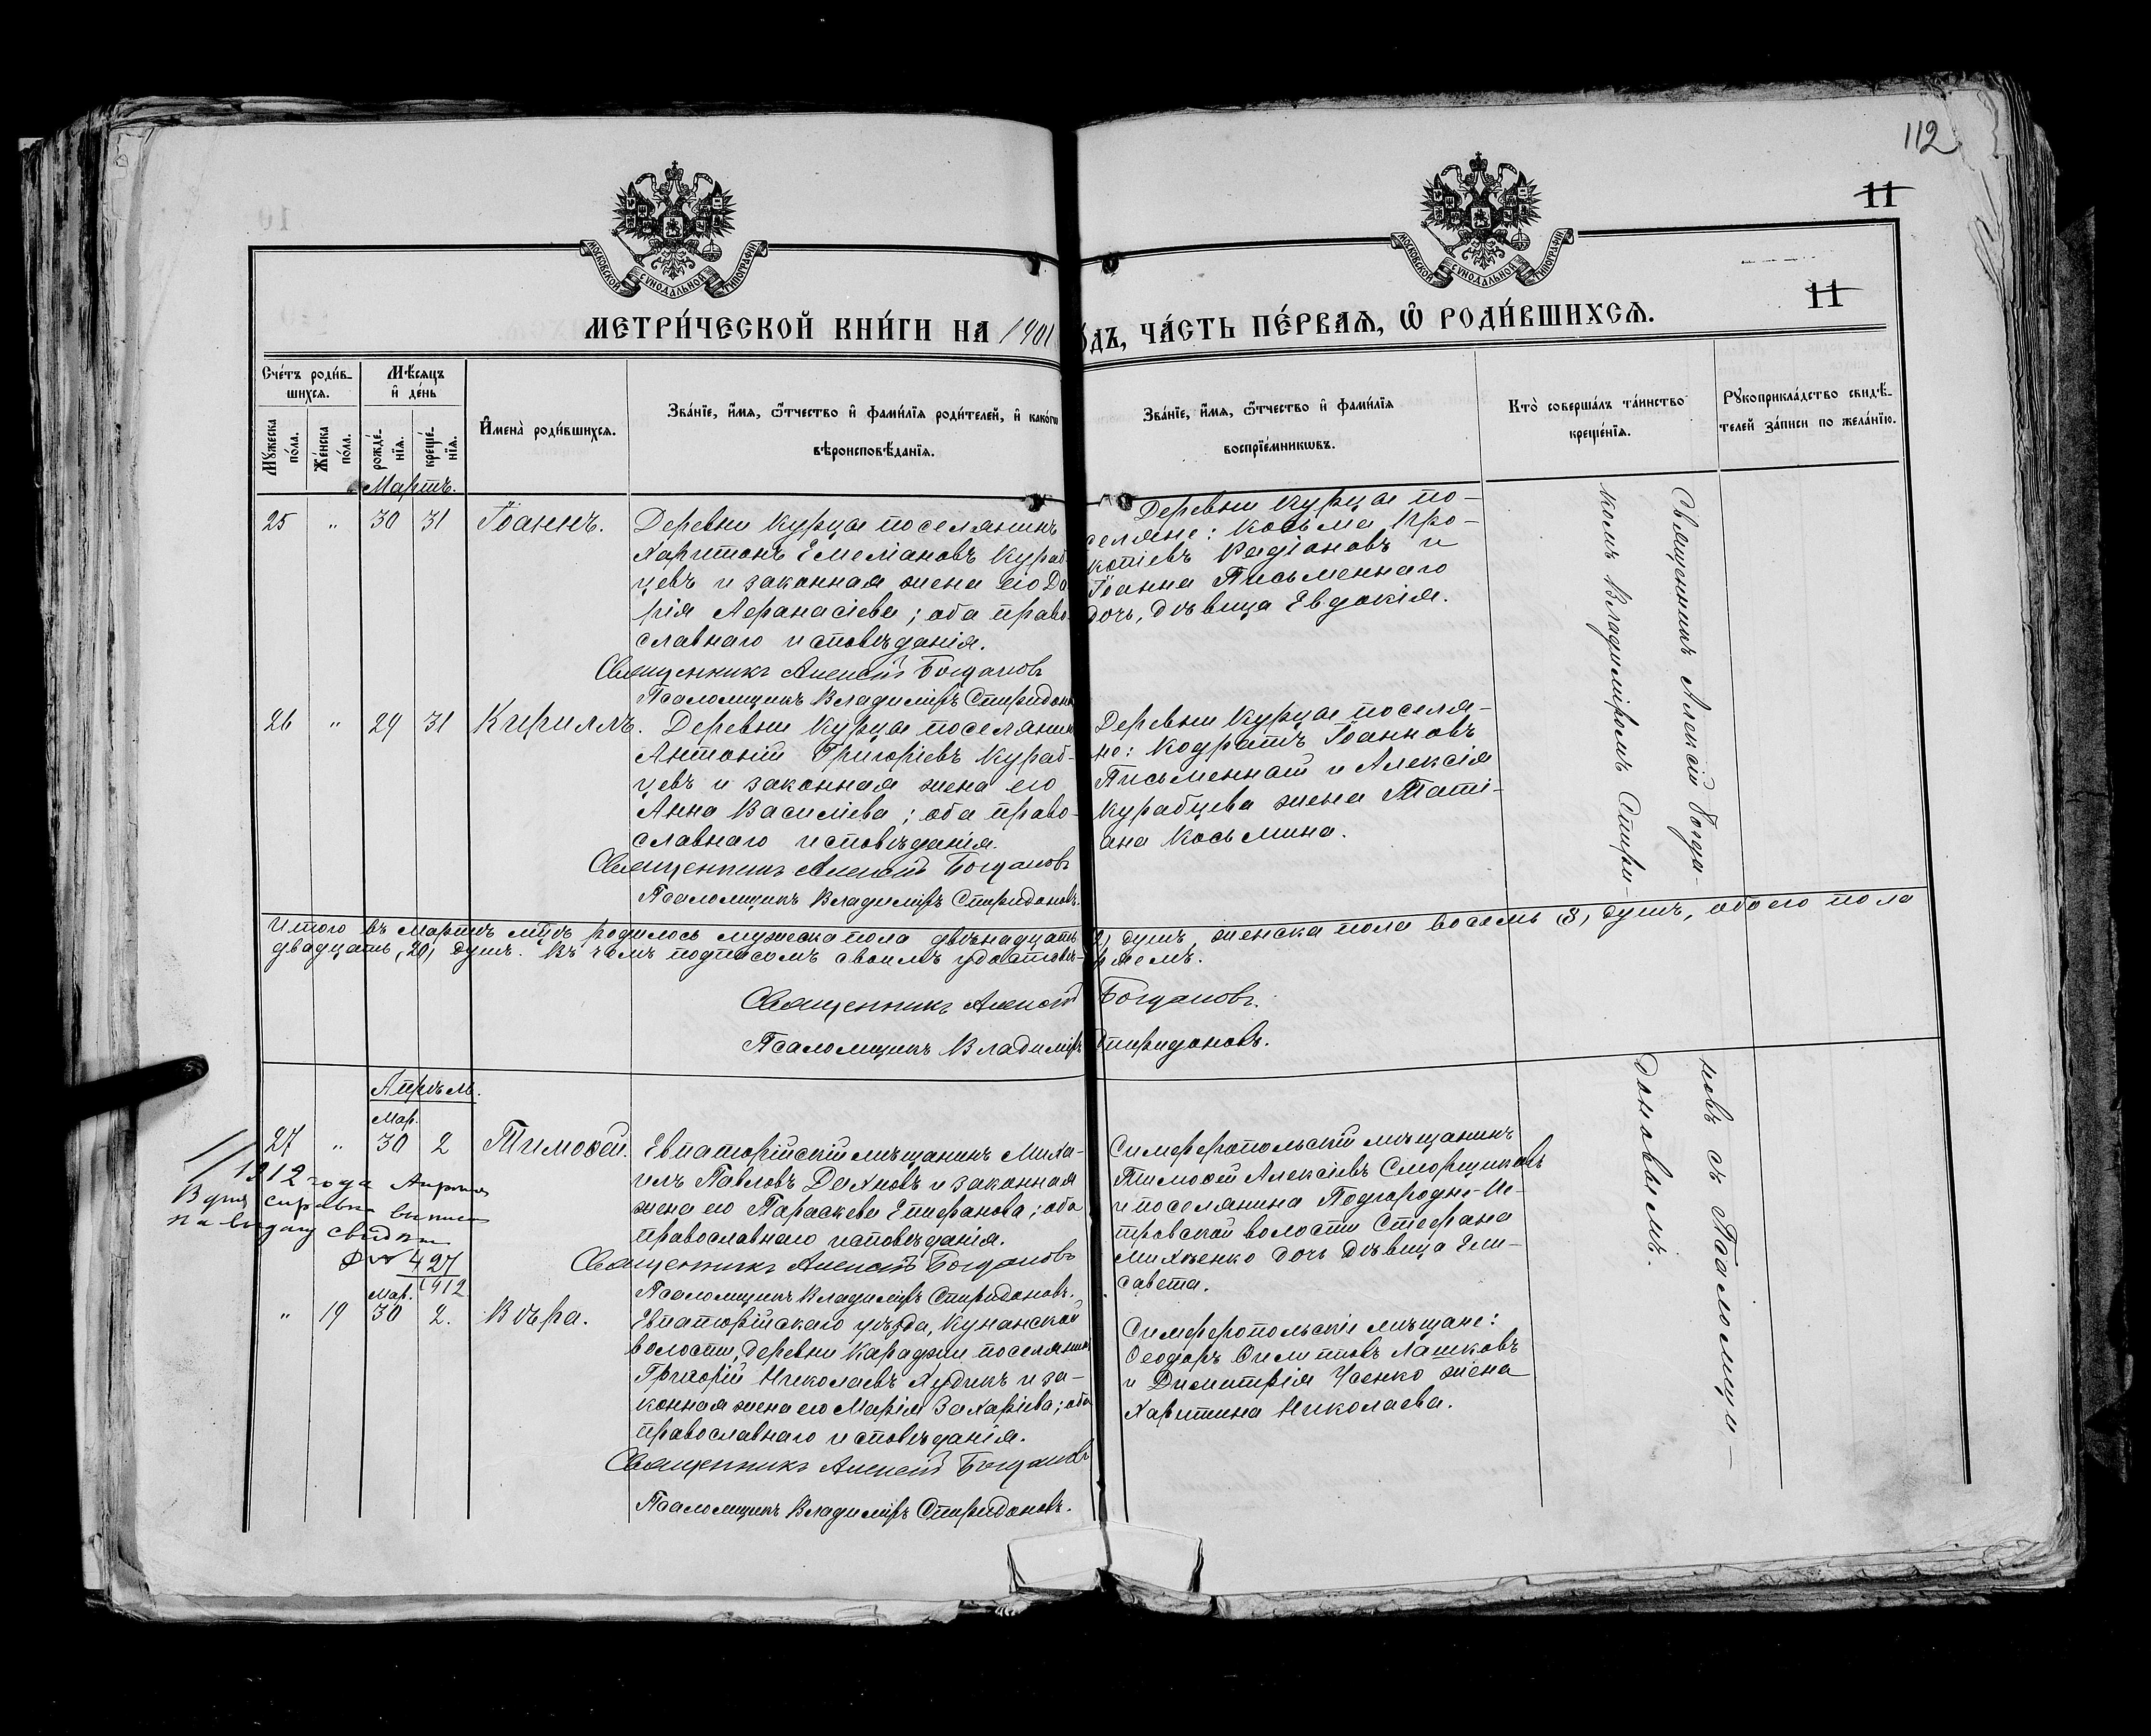 112
11
11
МОСКОВСКОЙ СѴНОДАЛЬНОЙ ТИПОГРАФІИ
МОСКОВСКОЙ СѴНОДАЛЬНОЙ ТИПОГРАФІИ
МЕТРИ́ЧЕСКОЙ КНИ́ГИ НА 1901 ОДЪ, ЧА́СТЬ ПЕ́РВАѦ, Ѡ҆ РОДИ́ВШИХСѦ.
Сче́тъ роди́в-
шихсѧ.
Мꙋ́жеска по́ла.
Же́нска по́ла.
Мѣ́сѧцъ
и҆ де́нь
рожде́-
нїѧ.
креще́-
нїѧ.
И҆мена̀ роди́вшихсѧ.
Зва́нїе, и҆́мѧ, ѻ҆́тчество и҆ фами́лїѧ роди́телей, и҆ како́гѡ
вѣроисповѣ́данїѧ.
Зва́нїе, и҆́мѧ, ѻ҆́тчество и҆ фами́лїѧ
воспрїе́мникѡвъ.
Кто̀ соверша́лъ та́инство
креще́нїѧ.
Рꙋкоприкла́дство свидѣ́-
телей за́писи по жела́нїю.
Мартъ.
25 " 30 31 Іоаннъ.
Деревни Курцы поселянинъ
Харитонъ Емеліановъ Кураб-
цевъ и законная жена его Да
рія Аѳанасіева; оба право-
славнаго исповѣданія.
Священникъ Алексій Богдановъ
Псаломщикъ Владиміръ Спиридонов
Деревни Курцы по-
селяне: Косьма Про-
копіевъ Радіоновъ и
Іоанна Письменнаго
дочь, дѣвица Евдокія.
26 " 29 31 Кириллъ.
Деревни Курцы поселянинъ
Антоній Григоріевъ Кураб-
цевъ и законная жена его
Анна Василіева; оба право-
славнаго исповѣданія.
Священникъ Алексій Богдановъ
Псаломщикъ Владиміръ Спиридоновъ.
Деревни Курцы поселя-
не: Кодратъ Іоанновъ
Письменный и Алексія
Курабцева жена Таті-
ана Косьмина.
Священникъ Алексій Богда-
новъ съ Псаломщи-
комъ Владиміромъ Спири-
доновымъ.
Итого въ Мартѣ мцѣ родилось мужеска пола двѣнадцать 2) душъ, женска пола восемь (8) душъ, обоего пола
двадцать (20) душъ. Въ чемъ подписомъ своимъ удостовѣ- ряемъ.
Священникъ Алексій Богдановъ.
Псаломщикъ Владиміръ Спиридоновъ.
Апрѣль.
Мар.
27 " 30 2 Тимоѳей.
Евпаторійскій мѣщанинъ Миха-
илъ Павловъ Дахновъ и законная
жена его Параскева Епифанова; оба
православнаго исповѣданія.
Священникъ Алексій Богдановъ
Псаломщикъ Владиміръ Спиридоновъ.
Симферопольскій мѣщанинъ
Тимоѳей Алексіевъ Сморщиковъ
и поселянина Подгородне-Пе-
тровской волости Стефана
Михненко дочь дѣвица Ели-
савета.
1912 года Апрѣля
В дня справка выпис
на выдачу свид
427
1912
Мар.
" 19 30 2. Вѣра.
Евпаторійскаго уѣзда, Кунанской
волости, деревни Караджи поселянинъ
Григорій Николаевъ Худикъ и за-
конная жена его Марія Захаріева; оба
православнаго исповѣданія.
Священникъ Алексій Богдановъ
Псаломщикъ Владиміръ Спиридоновъ.
Симферопольскіе мѣщане:
Ѳеодоръ Филипповъ Лашковъ
и Димитрія Чаенко жена
Харитина Николаева.